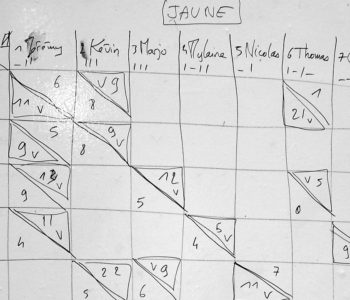 JAUNE
1 Jérémy 2 Kévin 3 Marjo 4 Mylaine 5 Nicolas 6 Thomas 7
6 v 9 1
11 v 8 21 v
5 9 v
9 v 8
12 v v 5
9 5 0
11 5 v
4 v 4 v 9
22 v 9 7
5 6 11 v